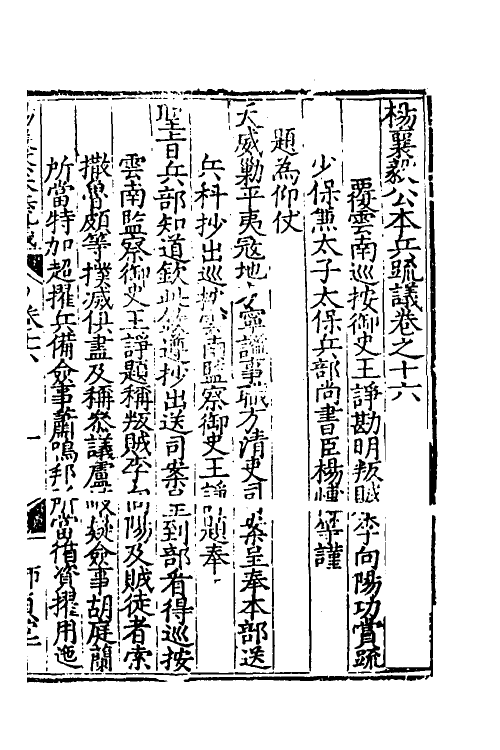 楊襄毅公本兵疏議卷之十六
覆雲南巡按御史王諍勘明叛賊李向陽功賞疏
少保兼太子太保兵部尚書臣楊等謹
題為仰仗
天威勦平夷寇地方寧謐事職方清吏司案呈奉本部送
兵科抄出巡按雲南監察御史王諍題奉
聖旨兵部知道欽此欽遵抄出送司案呈到部看得巡按
雲南監察御史王諍題稱叛賊李向陽及賊徒者索
撒魯頗等撲滅俱盡及稱參議盧岐嶷僉事胡庭蘭
所當特加超擢兵備僉事蕭鳴邦所當循資擢用迤
卷十六 一 師貞堂